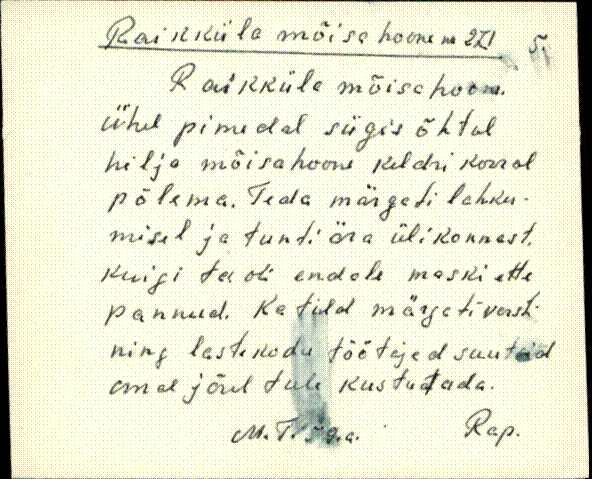 Raikküla mõisa hoone m 221 5.
Raikküla mõisahoone.
Ühel pimedal sügis õhtul
hilja mõisahoone keldri korral
põlema. Teda märgati lahku-
misel ja tunti ära ülikonnast,
kuigi ta oli endale maski ette
pannud. Ka tuld märgati varsti
ning lastekodu töötajad suutsid
omal jõul tule kustutada.
M. T. 5 g.a. Rap.